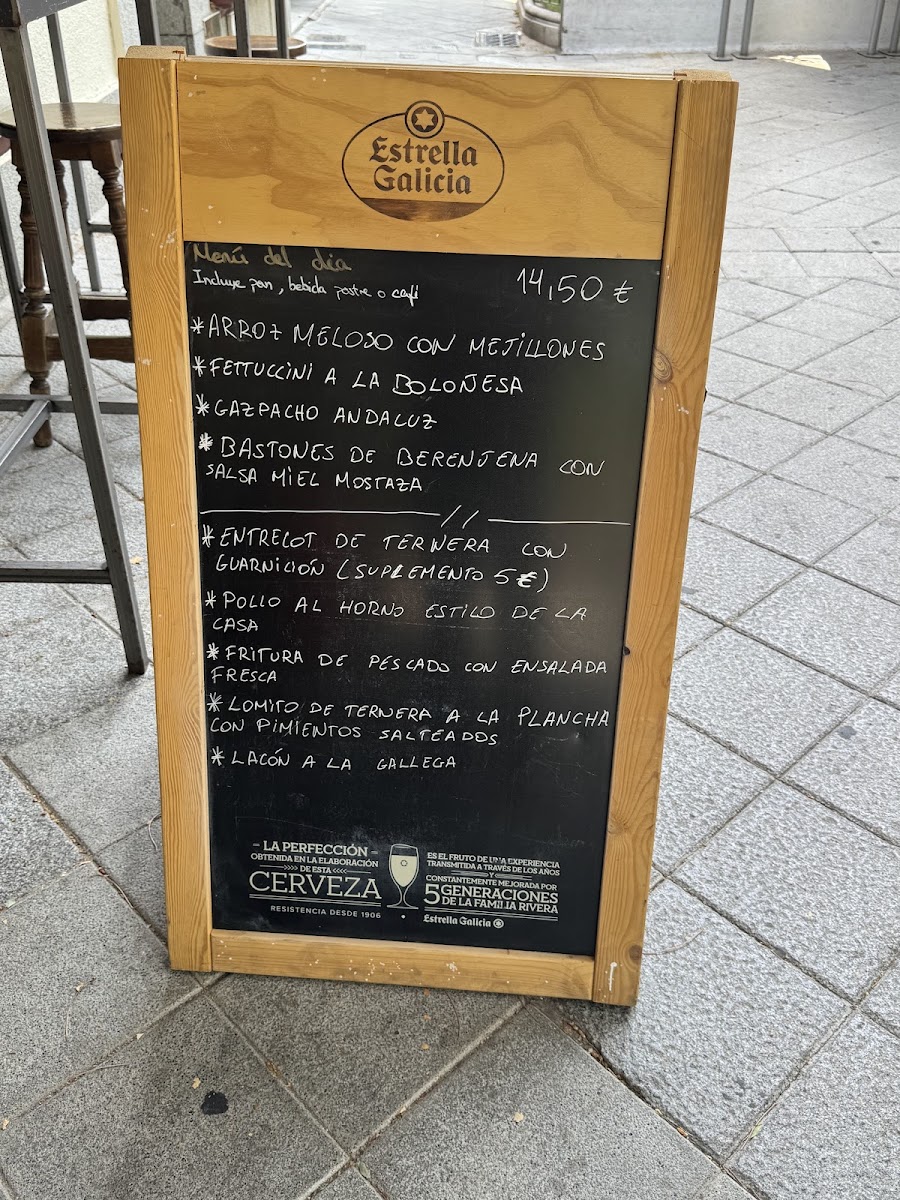 Estrella
Galicia
Menú del día
Incluye pan, bebida postre o café
14,50 €
*ARROZ MELOSO CON MEJILLONES
*FETTUCCINI A LA BOLOÑESA
*GAZPACHO ANDALUZ
*BASTONES DE BERENJENA CON
SALSA MIEL MOSTAZA
//
*ENTRECOT DE TERNERA CON
GUARNICIÓN (SUPLEMENTO 5€)
*POLLO AL HORNO ESTILO DE LA
CASA
*FRITURA DE PESCADO CON ENSALADA
FRESCA
*LOMITO DE TERNERA A LA PLANCHA
CON PIMIENTOS SALTEADOS
*LACÓN A LA GALLEGA
– LA PERFECCIÓN –
OBTENIDA EN LA ELABORACIÓN
>>>> DE ESTA <<<<
CERVEZA
RESISTENCIA DESDE 1906
ES EL FRUTO DE UNA EXPERIENCIA
TRANSMITIDA A TRAVÉS DE LOS AÑOS
Y
CONSTANTEMENTE MEJORADA POR
5 GENERACIONES
DE LA FAMILIA RIVERA
Estrella Galicia